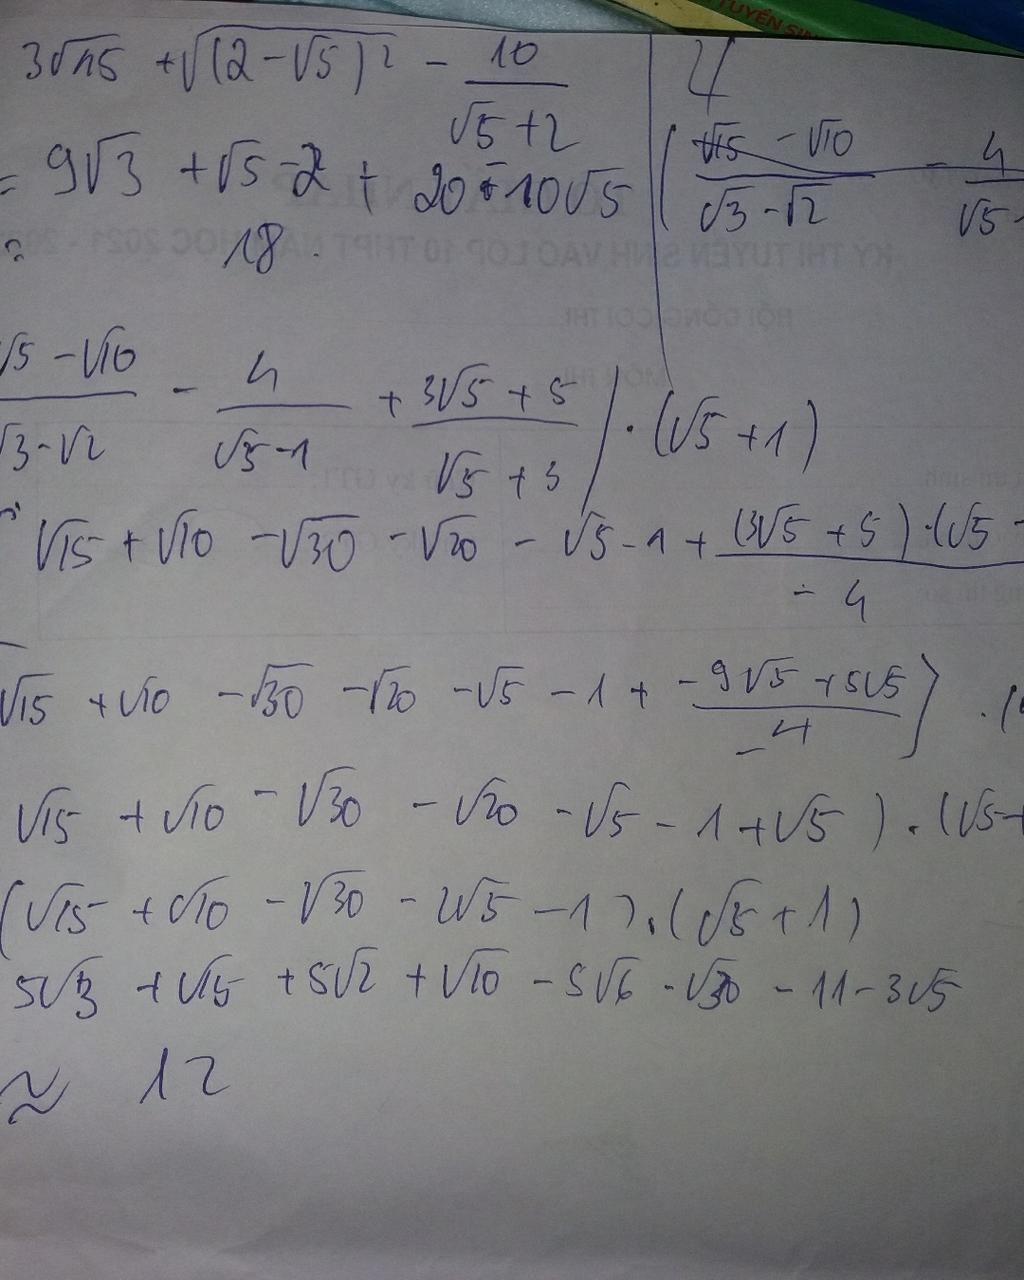 TUYỂN SINH
3√45 + √(2 - √5)² - 10/(√5 + 2)
= 9√3 + √5 - 2 + 20 - 10√5
= 18.
4
( (√15 - √10)/(√3 - √2) - 4/(√5 -
√5 - √10/(√3 - √2) - 4/(√5 - 1) + (3√5 + 5)/(√5 + 3) ) . (√5 + 1)
√15 + √10 - √30 - √20 - √5 - 1 + (3√5 + 5).(√5 -/-4
√15 + √10 - √30 - √20 - √5 - 1 + (-9√5 + 5√5)/-4 ) . (
√15 + √10 - √30 - √20 - √5 - 1 + √5 ) . (√5 +
(√15 + √10 - √30 - 2√5 - 1).(√5 + 1)
5√3 + √15 + 5√2 + √10 - 5√6 - √30 - 11 - 3√5
≈ 12